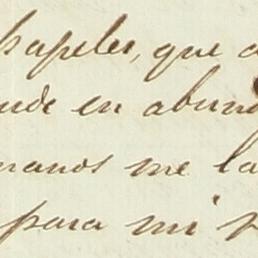 papeles, que
en abun
manos me la
para mi